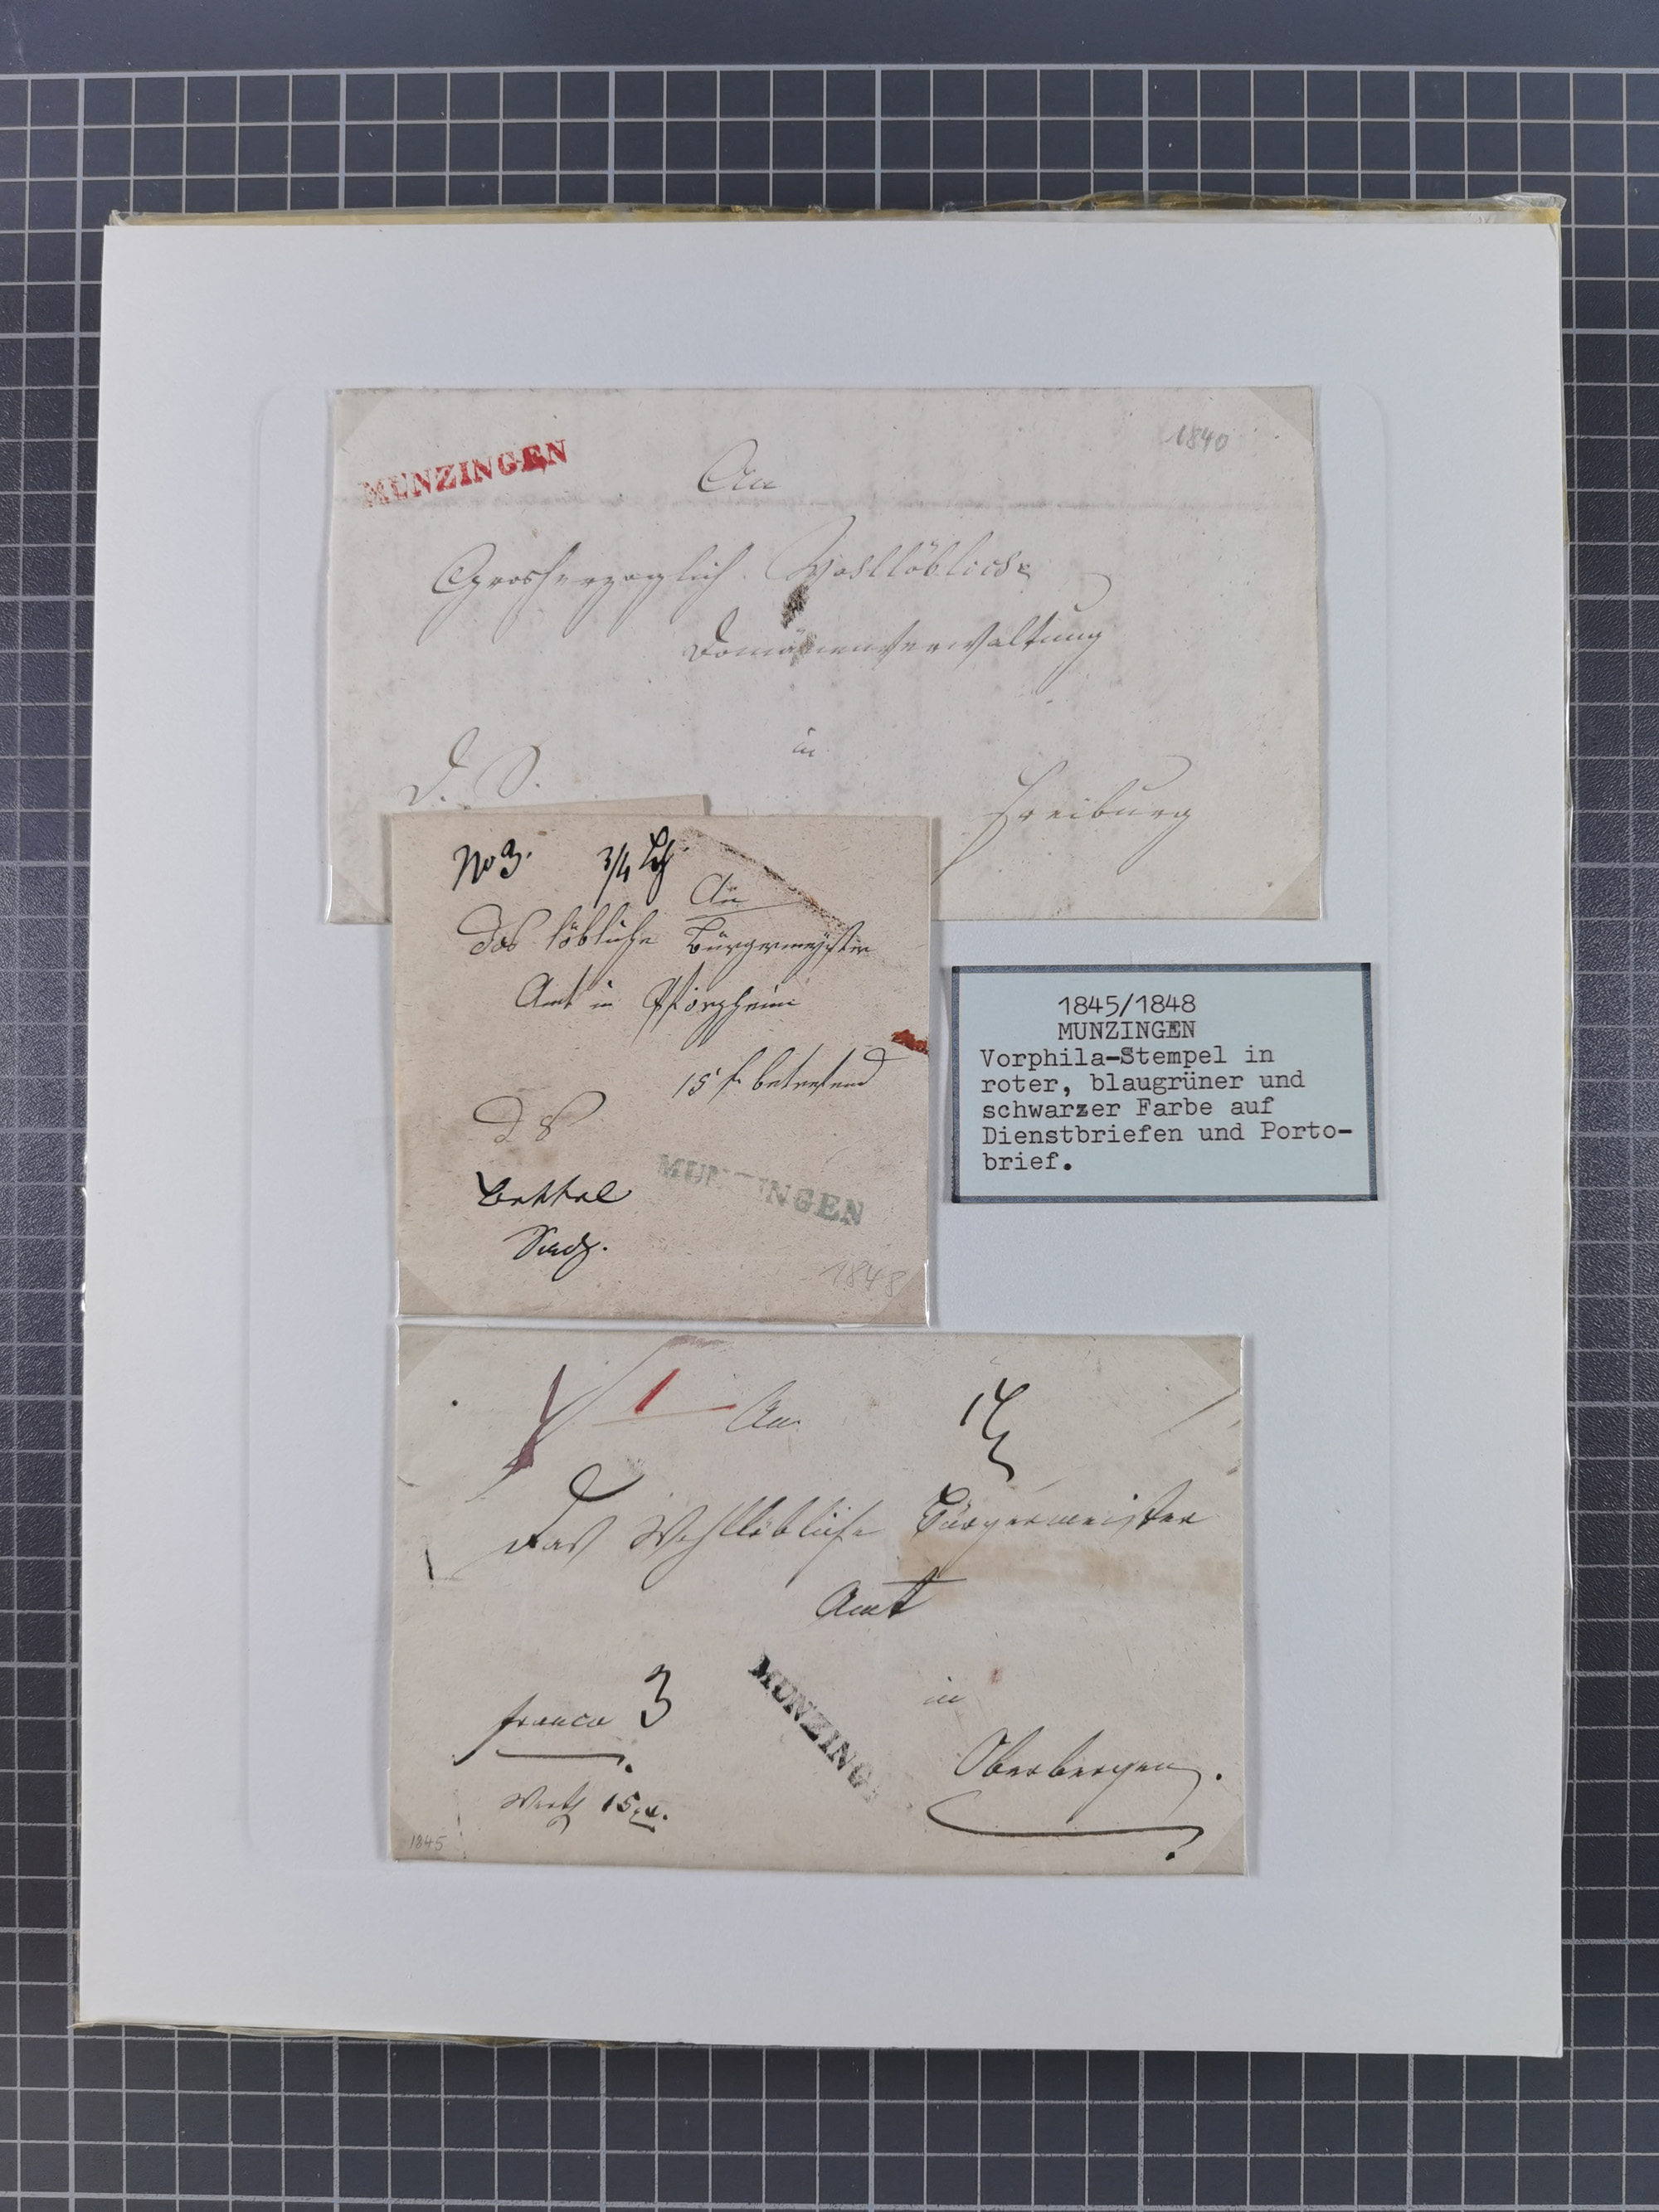 MUNZINGEN
1840
An
Grosherzoglich Wohllöbliche
Domänenverwaltung
in
D. S.
Freiburg
No 3. 3/4 Lth
An
das löbliche Bürgermeyster
Amt in Pforzheim
15 f betrefend
D S
MUNZINGEN
1848
1
An
Das Wohllöbliche Bürgermeister
Amt
MUNZING
in
franco 3
Oberbergen.
Werth 15
1845
1845/1848
MUNZINGEN
Vorphila-Stempel in
roter, blaugrüner und
schwarzer Farbe auf
Dienstbriefen und Porto-
brief.